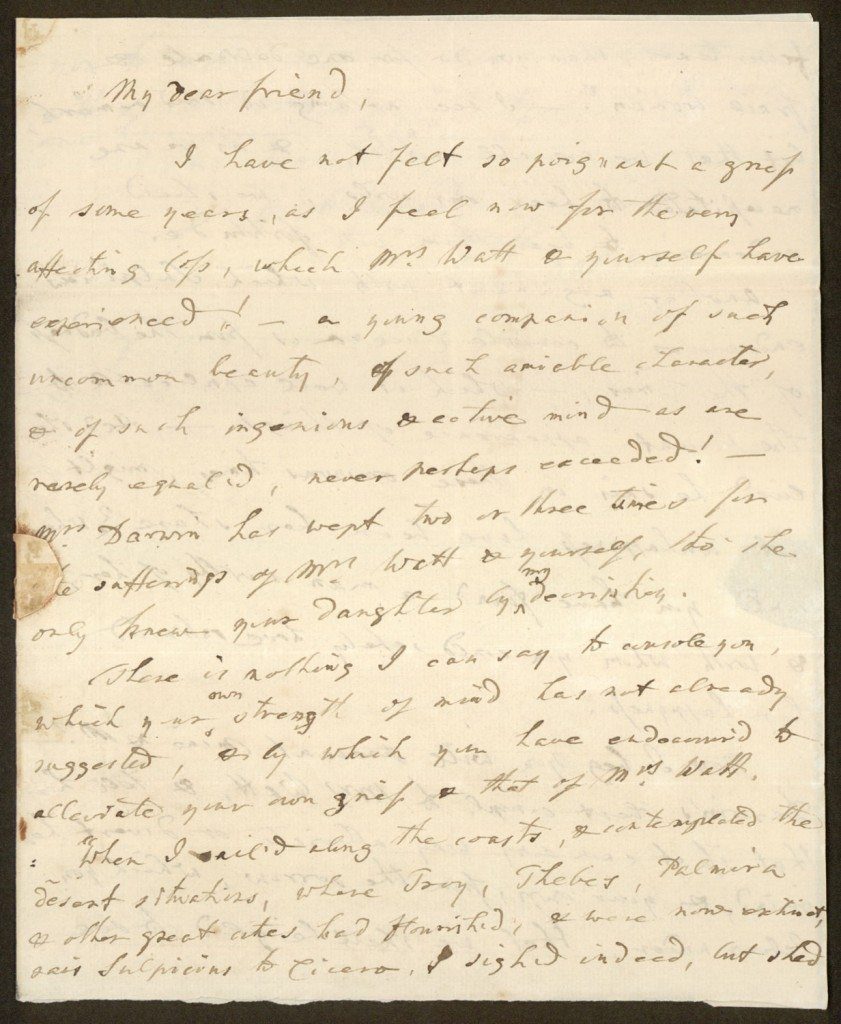 My dear friend,
I have not felt so poignant a grief
of some years, as I feel now for the very
affecting loss, which Mrs Watt & yourself have
experienced! — a young companion of such
uncommon beauty, of such amiable character,
& of such ingenious & active mind as are
rarely equal'd, never perhaps exceeded! —
Mrs Darwin has wept two or three times for
the sufferings of Mrs Watt & yourself, tho' she
only knew your daughter by my description.
There is nothing I can say to console you,
which your own strength of mind has not already
suggested, & by which you have endeavour'd to
alleviate your own grief & that of Mrs Watt.
"When I sail'd along the coasts, & contemplated the
desert situations, where Troy, Thebes, Palmira
& other great cities had flourish'd, & were now extinct,
says Sulpicius to Cicero, I sigh'd indeed, but shed